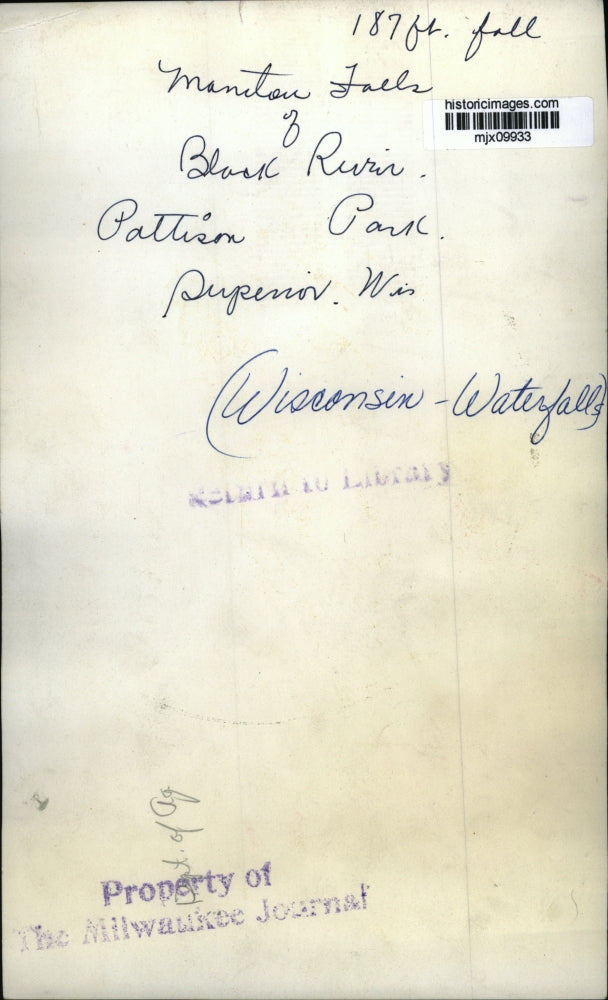 187 ft. fall
Manitou Falls
historicimages.com
mjx09933
of
Black River.
Pattison Park.
Superior. Wis
(Wisconsin - Waterfalls)
Return to Library
Dept. of Ag
Property of
The Milwaukee Journal